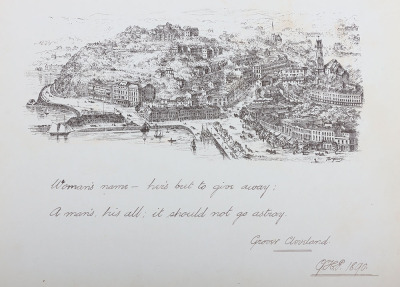 Woman's name – hers but to give away;
A man's, his all, it should not go astray.
Grover Cleveland
1890.